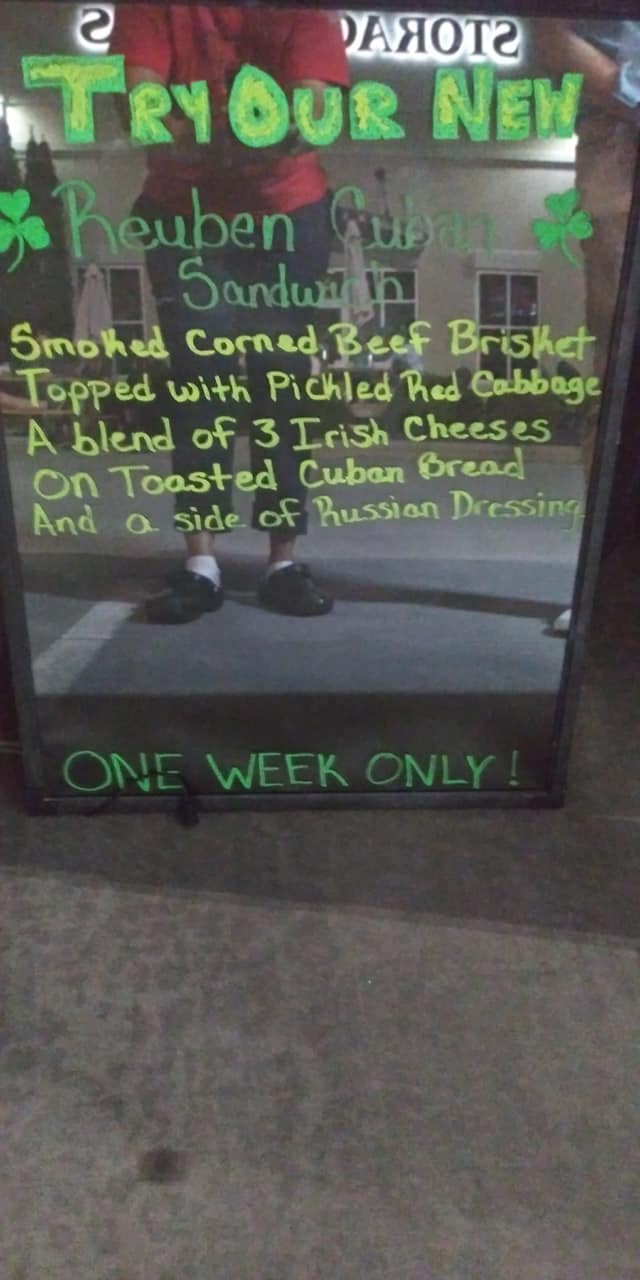 STORAG S
TRY OUR NEW
Reuben Cuban
Sandwich
Smoked Corned Beef Brisket
Topped with Pickled Red Cabbage
A blend of 3 Irish Cheeses
On Toasted Cuban Bread
And a side of Russian Dressing
ONE WEEK ONLY!